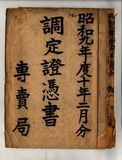 昭和九年度十年二月分
調定證憑書
專賣局